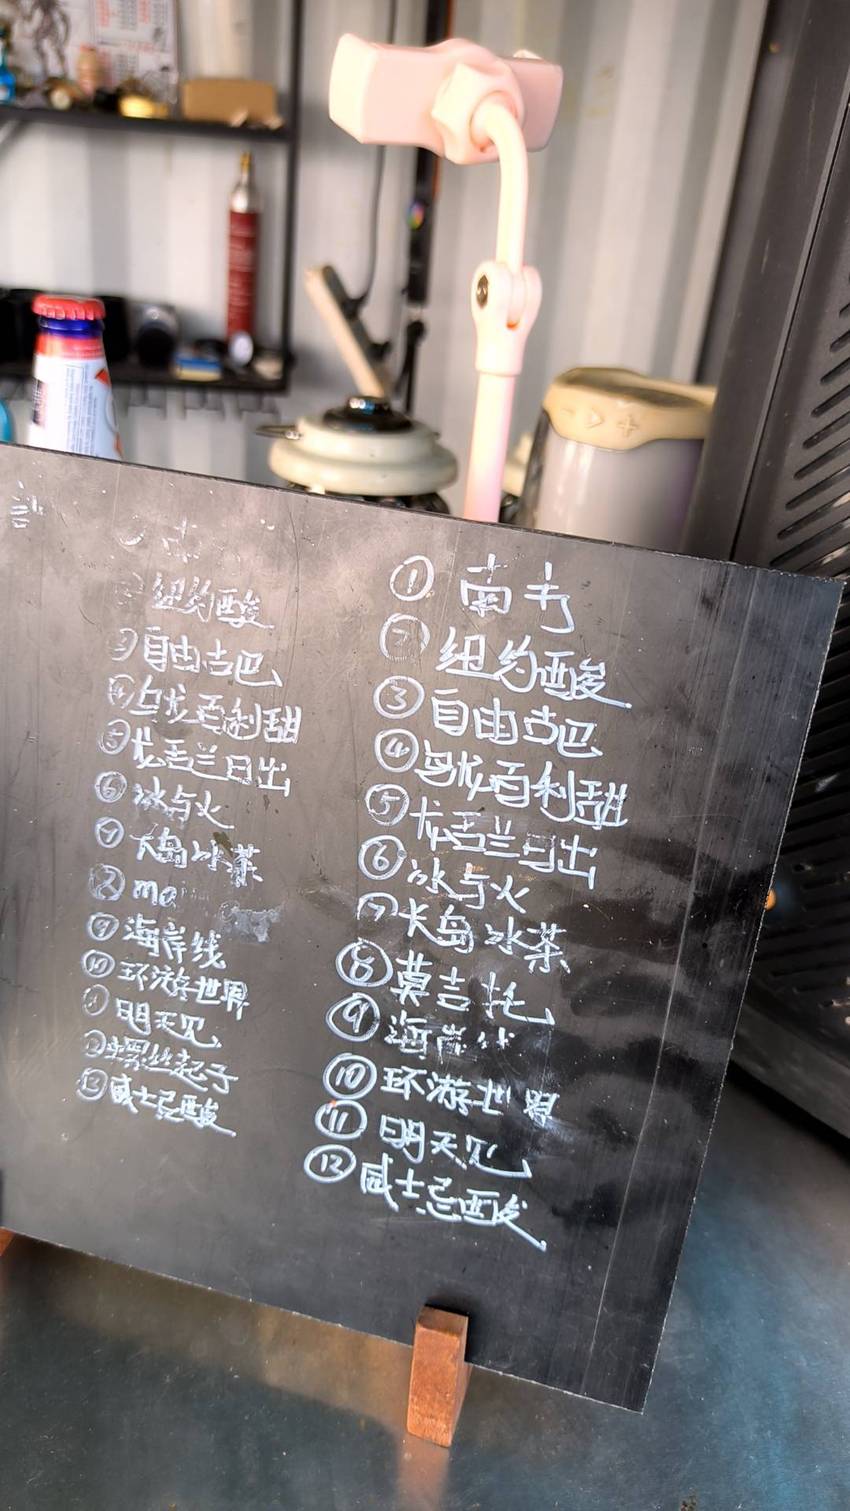 纽约酸
③自由古巴
④乌龙百利甜
⑤龙舌兰日出
⑥冰与火
⑦长岛冰茶
⑫ma
⑨海岸线
⑩环游世界
明天见
螺丝起子
⑬威士忌酸
①南方
②纽约酸
③自由古巴
④乌龙百利甜
⑤龙舌兰日出
⑥冰与火
⑦长岛冰茶
⑧莫吉托
⑨海岸
⑩环游世界
⑪明天见
⑫威士忌酸